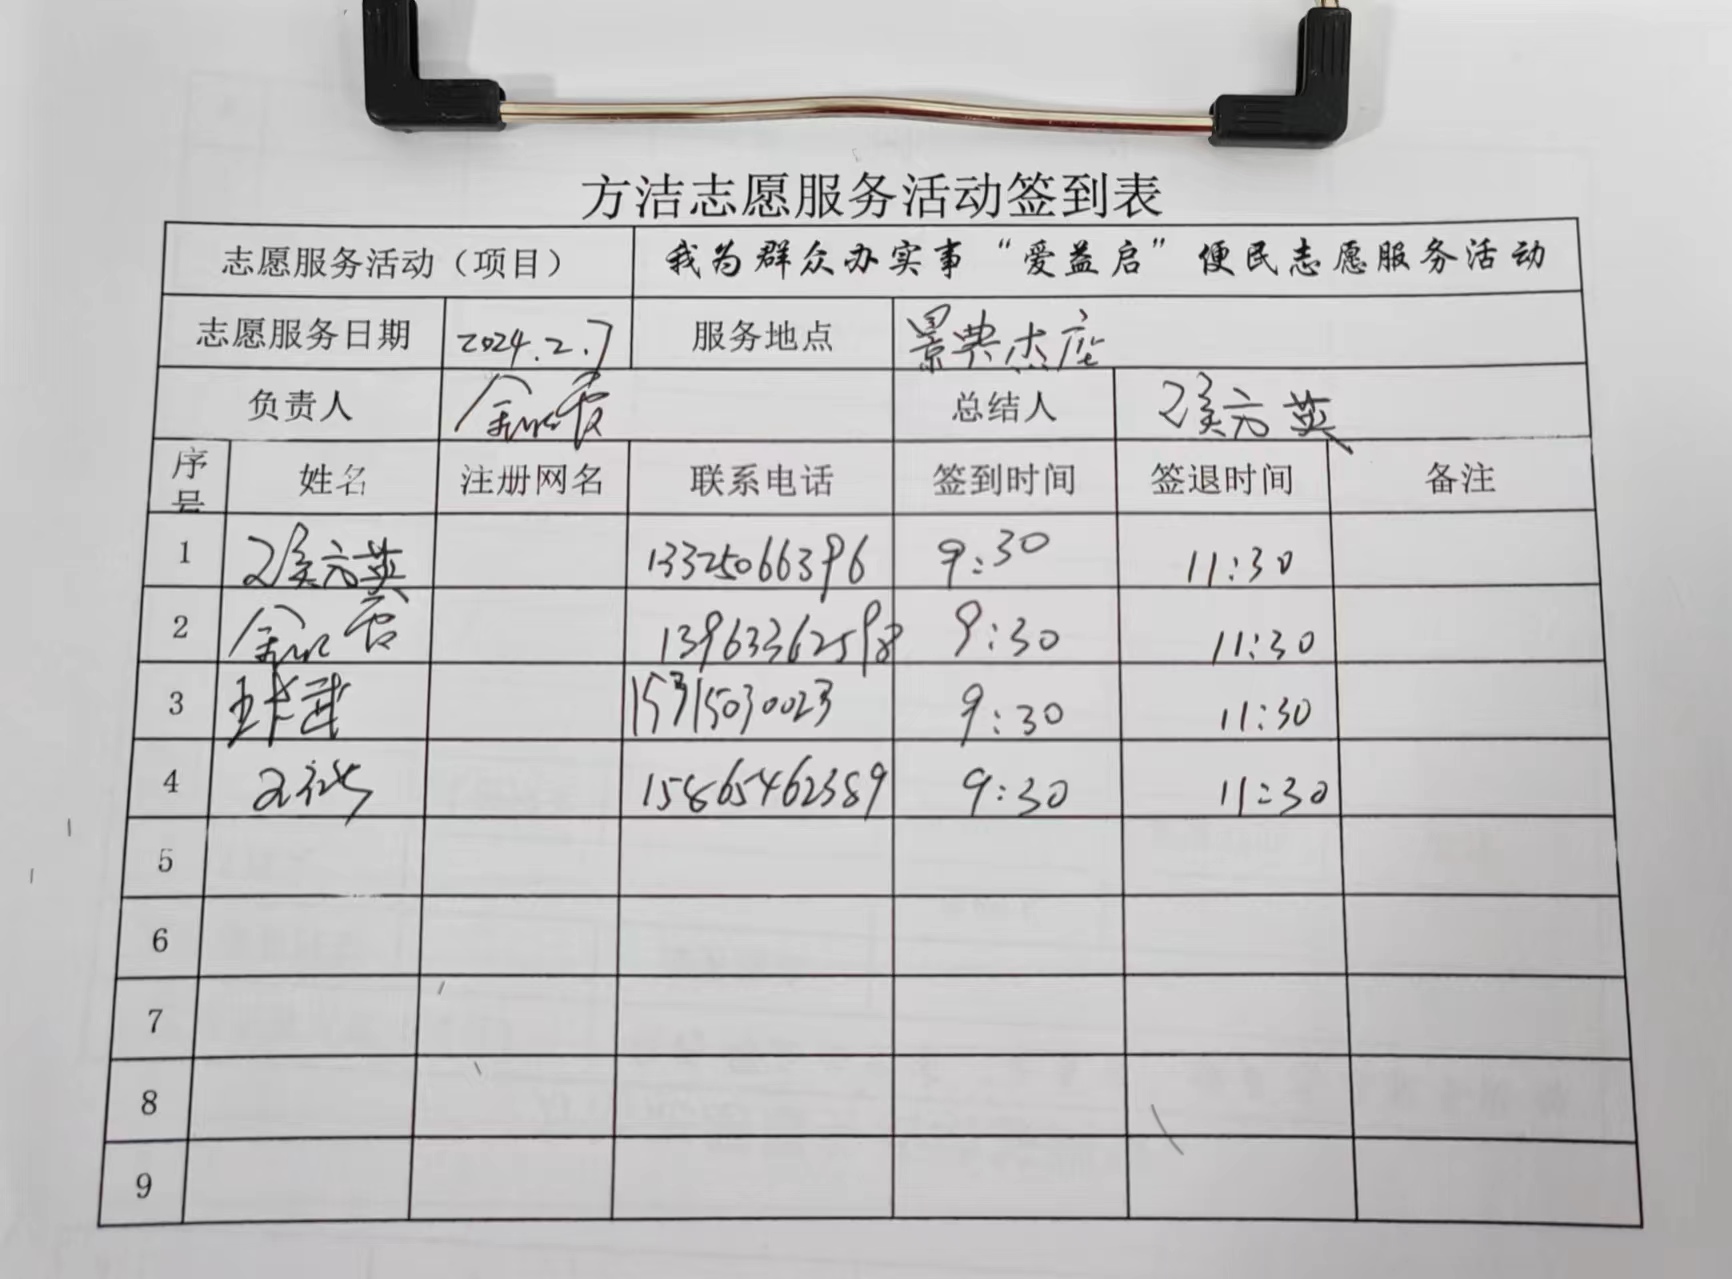 方洁志愿服务活动签到表
志愿服务活动（项目） 我为群众办实事“爱益启”便民志愿服务活动
志愿服务日期 2024.2.7 服务地点 景典杰座
负责人 总结人
序号 姓名 注册网名 联系电话 签到时间 签退时间 备注
1 13325066396 9:30 11:30
2 13963362598 9:30 11:30
3 15315030023 9:30 11:30
4 15865462389 9:30 11:30
5
6
7
8
9